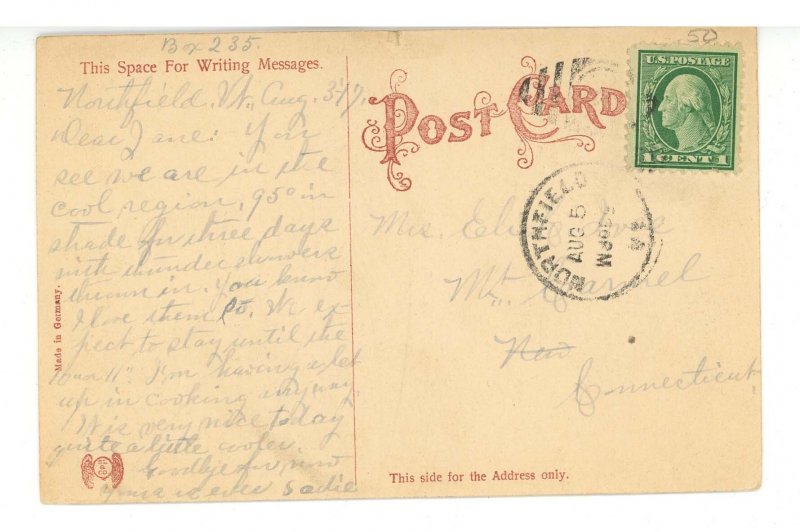 Bx 235.
50
This Space For Writing Messages.
Northfield, Vt, Aug. 3'17,
Dear Jane: You
see we are in the
cool region, 95° in
shade for three days
with thunder showers
thrown in. You know
I love them so. We ex-
pect to stay until the
"11". I'm having a let
up in cooking anyway.
It is very nice today
quite a little cooler.
Goodbye for now
Yours as ever Sadie
Made in Germany.
POST CARD
U.S. POSTAGE
1 CENT 1
NORTHFIELD
AUG 5
VT.
Mrs.
Mt. Carmel
New
Connecticut
This side for the Address only.